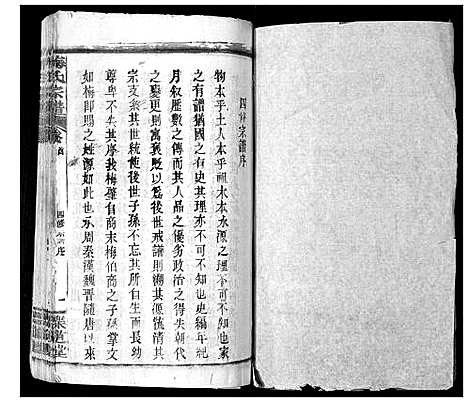 四修宗譜序
物本乎土人本乎祖水木本水源之理不可不知也家
之有譜猶國之有史其理亦不可不知也史編年紀
月叙歷數之傳其人品之優劣政治之得失朝代
之變更則寓褒貶以為後世戒譜則溯其源流清其
宗支系其世統使後世子孫不忘其所自生而長幼
尊卑不失其序我梅肇自商末梅伯商之子孫掌文
如梅即賜之姓源如此也承周秦漢魏晉隋唐以來
梅氏宗譜
四修宗譜序